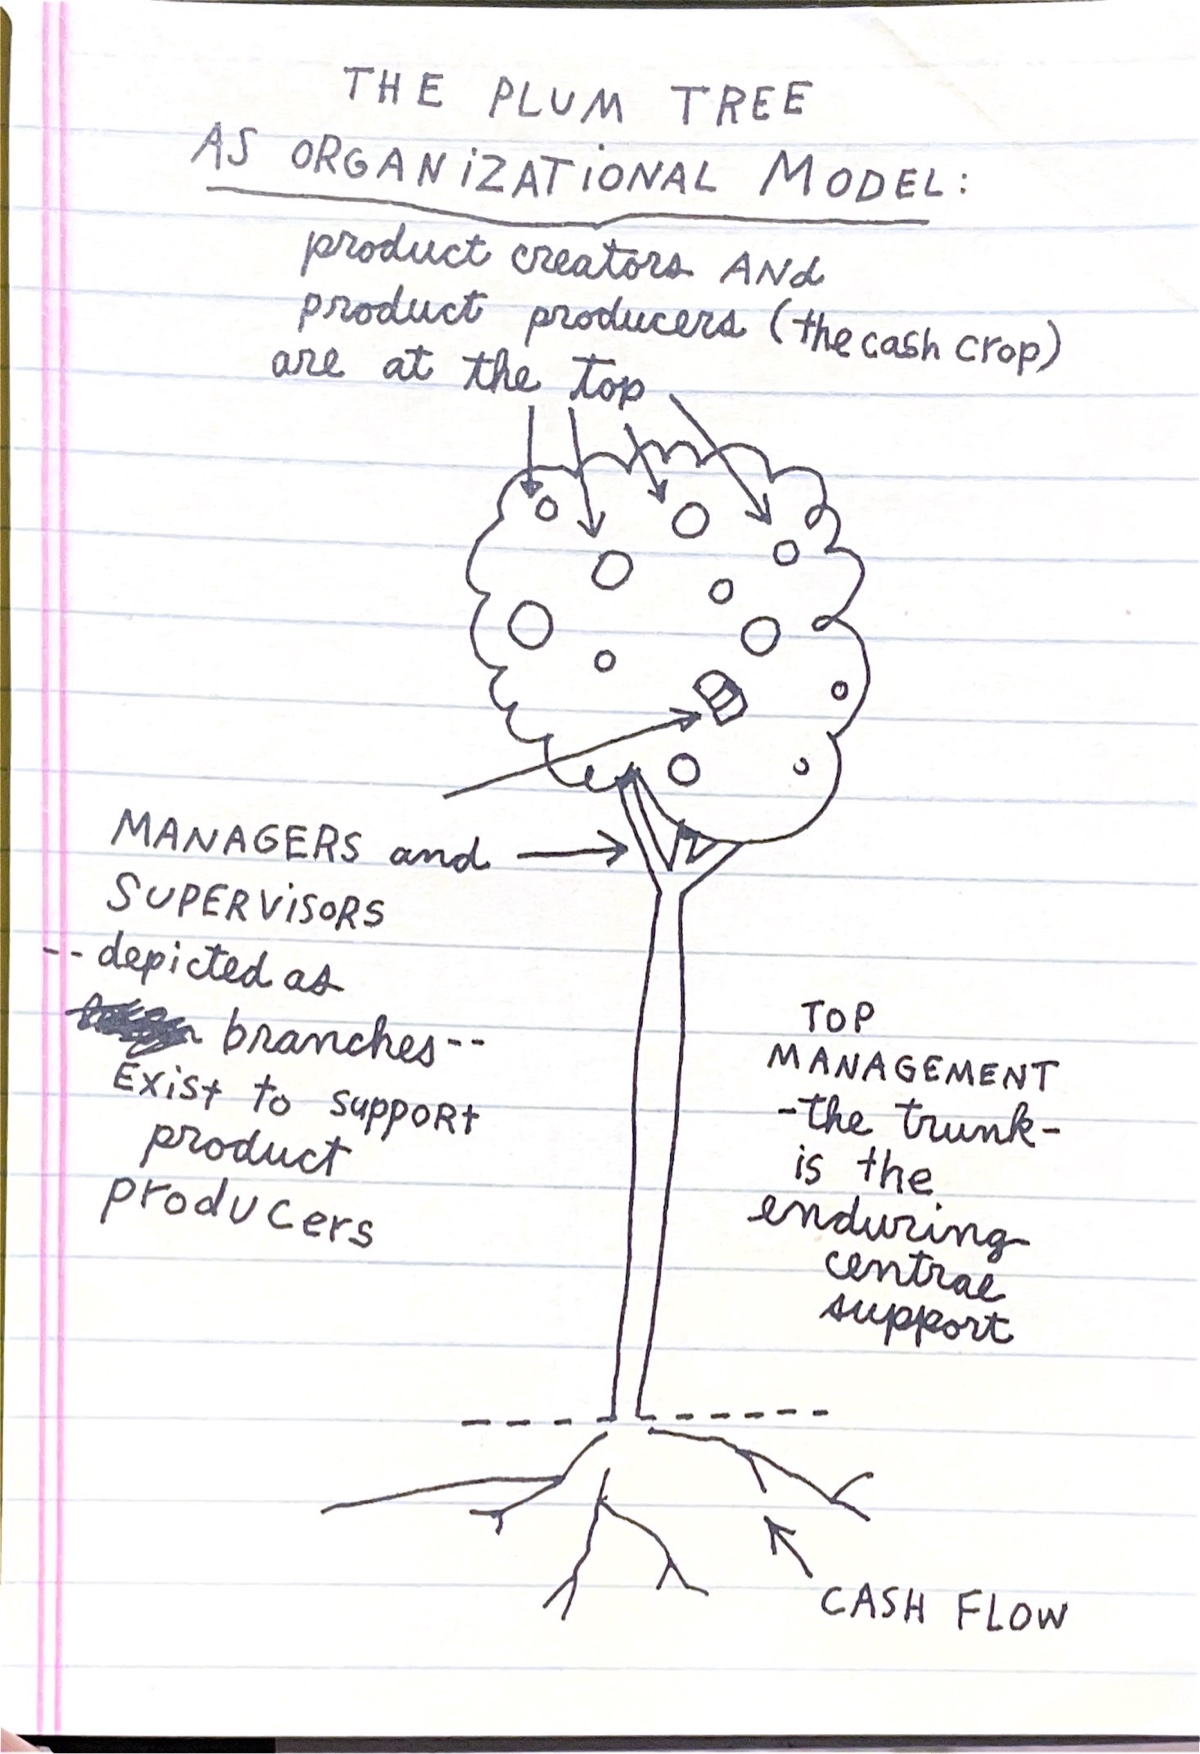 THE PLUM TREE
AS ORGANiZATiONAL MODEL:
product creators ANd
product producers (the cash crop)
are at the top
MANAGERS and
SUPERViSORS
-- depicted as
branches--
Exist to support
product
producers
TOP
MANAGEMENT
-the trunk-
is the
enduring
central
support
CASH FLOW